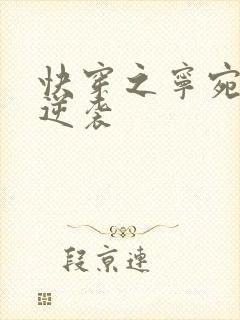 快穿之寧宛
逆袭
段京連